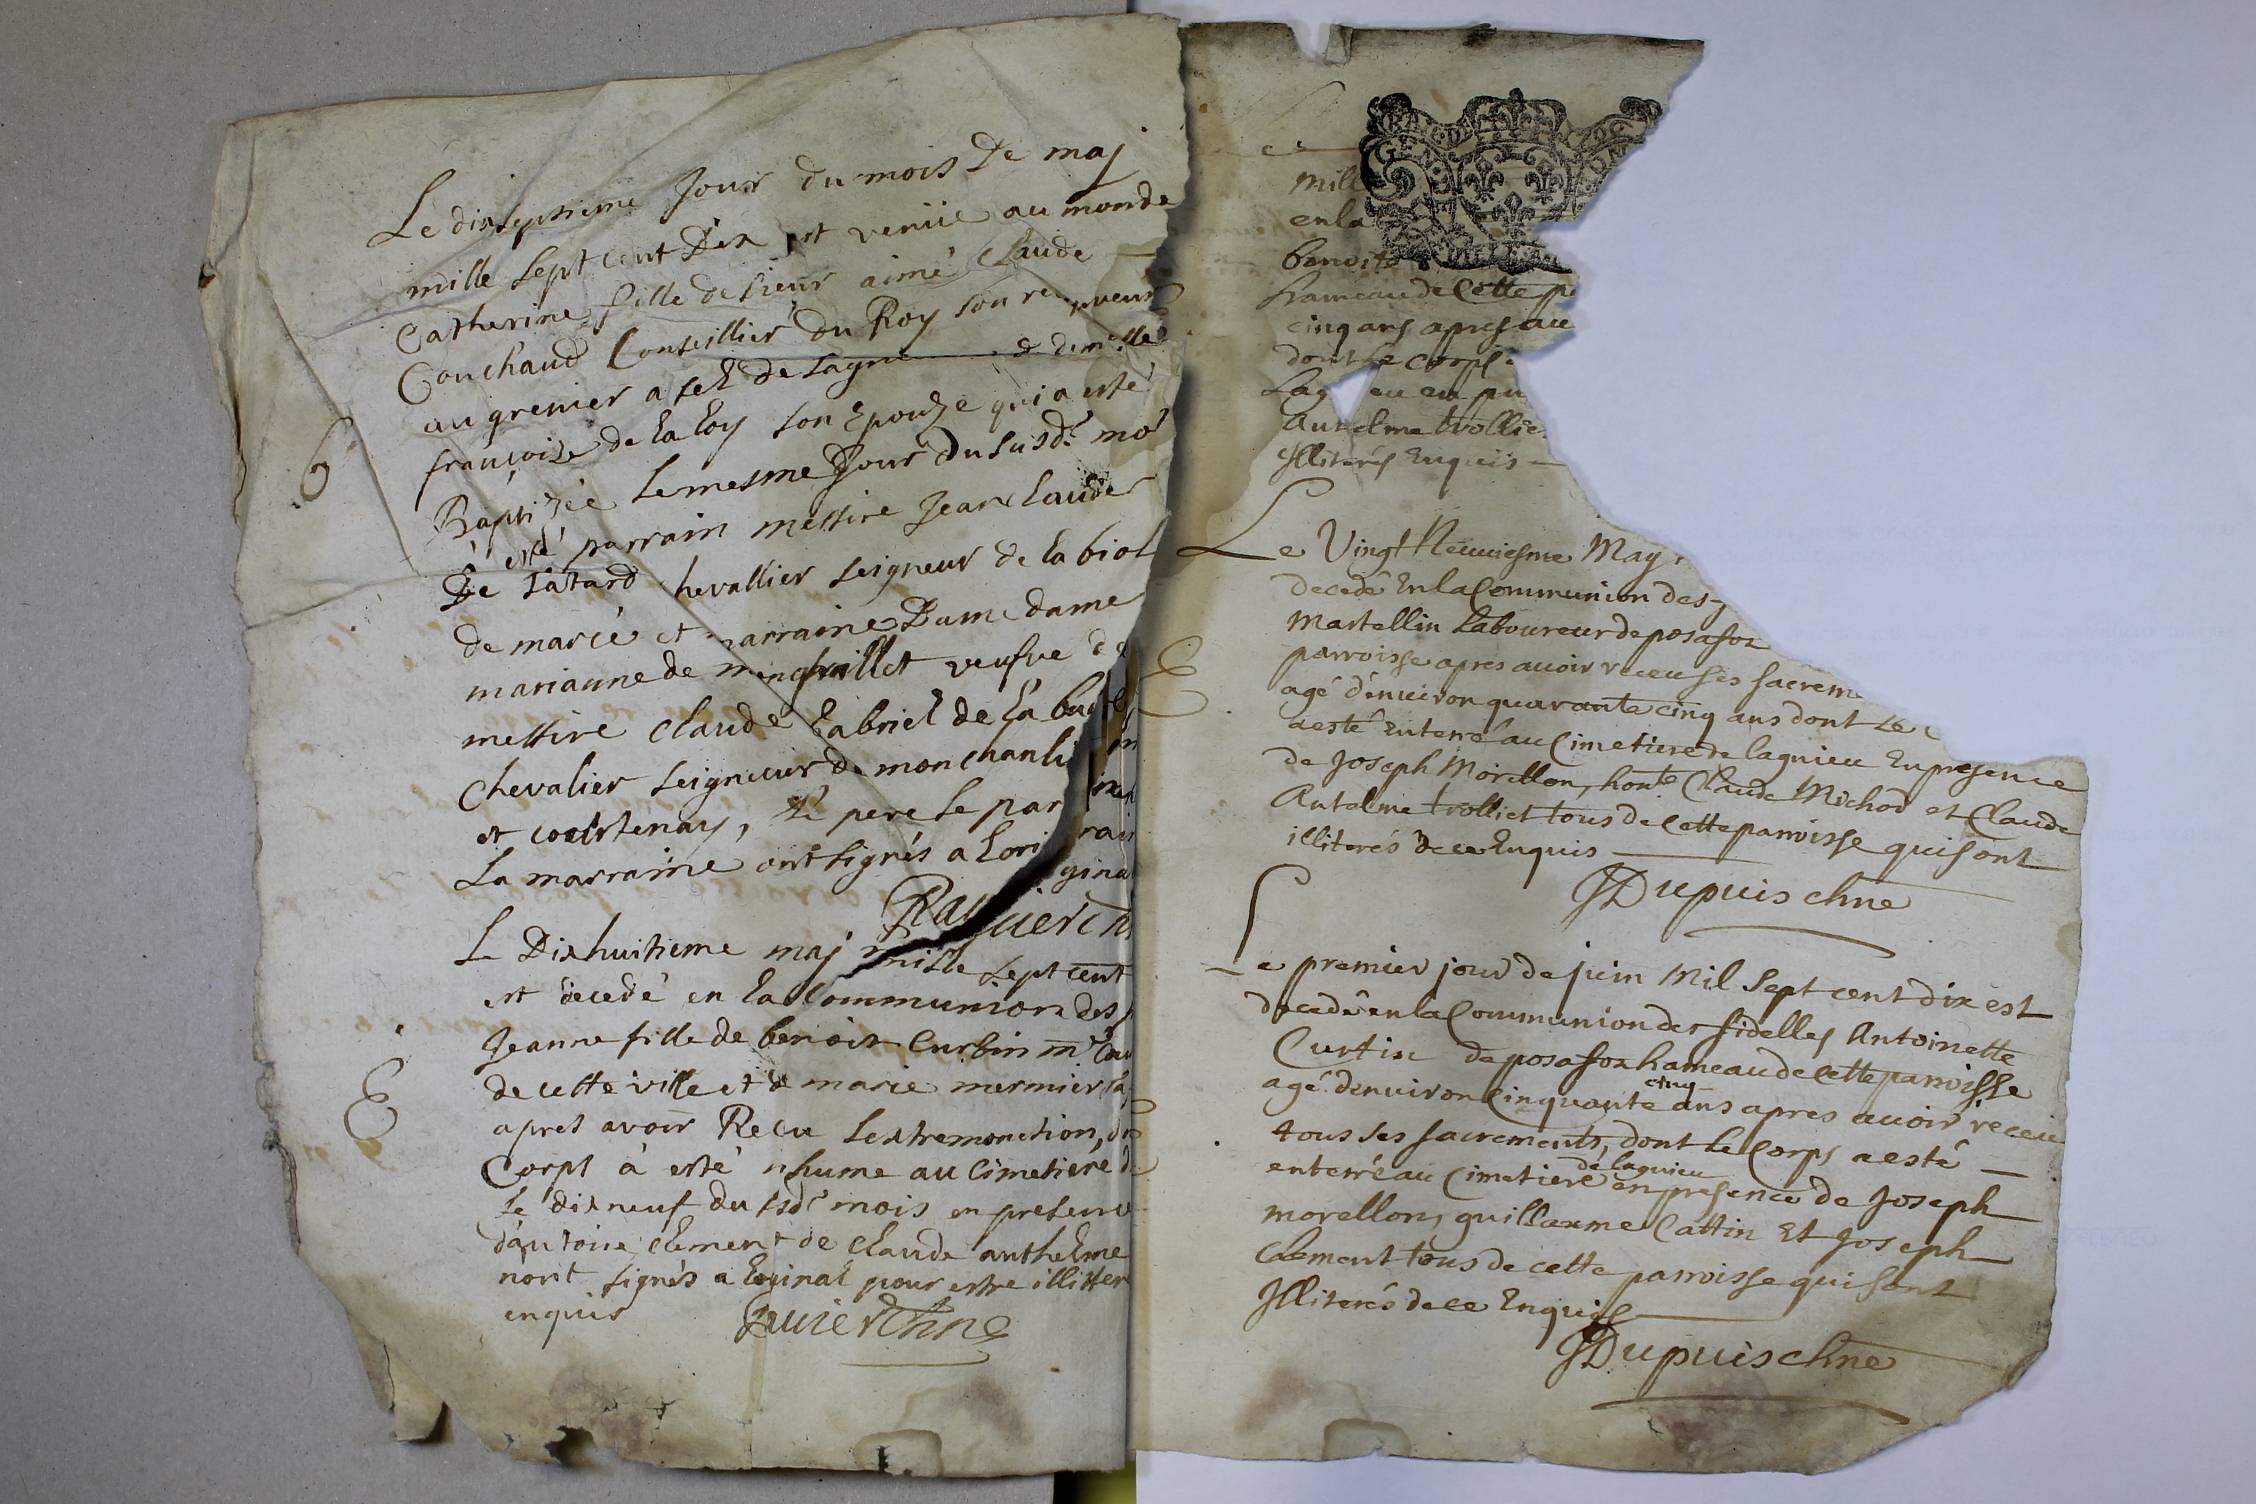 Le dixseptieme Jour du mois De maj
mille sept cent Dix est venüe au monde
Catherine fille de sieur aimé Claude
Couchaud Conseillier du Roy son re
au grenier a sel de Lagn & demlle
françoise de la loy son Epouze qui a esté
Baptizée le mesme Jour du susdt mo
à esté parrain messire Jean claude
De Chevallier seigneur de la
de marcé et marraine Dame dame
marianne de veufve de
messire claude gabriel de la
Chevalier seigneur de
et courtenay, le pere le par rain
La marraine ont signés a lori ginal
6
Le Dixhuitieme maj mille sept cent
est decedé en la Communion des
Jeanne fille de benoit Curtin
de cette ville et de marie mermier
apres avoir Recu lextremonction,
Corps à esté nhume au Cimetiere d
le dixneuf du sd mois en presence
dantoine clement de Claude anthelme
nont signés a loginal pour estre illitter
enquis
E
Le
mill
en la
benoite
hameau de Cette p
cinq ans apres au
dont le corps
Lag eu en pr
Antelme trollie
Illiterés Enquis
Le Vingt Neuviesme May
decedé En la Communion des
Martellin Laboureur de posafox
parroisse apres avoir receu ses sacrem
agé d'environ quarante cinq ans dont le c
a esté Enterré au Cimetiere de lagnieu En presence
de Joseph Morellon, honte Claude Michod et Claude
Antelme trolliet tous de Cette parroisse qui sont
illiterés de ce Enquis
JDupuis chne
E
Le premier jour de juin Mil Sept cent dix est
decedé en la Communion des fidelles Antoinette
Curtin de posafox hameau de Cette parroisse
agé denviron Cinquante cinq ans apres avoir receu
tous ses sacrements, dont le Corps a esté
enterré au Cimetiere de lagnieu en presence de Joseph
morellon, guillaume Cattin Et Joseph
Clement tous de cette parroisse qui sont
Illiterés de ce Enquis
JDupuis chne